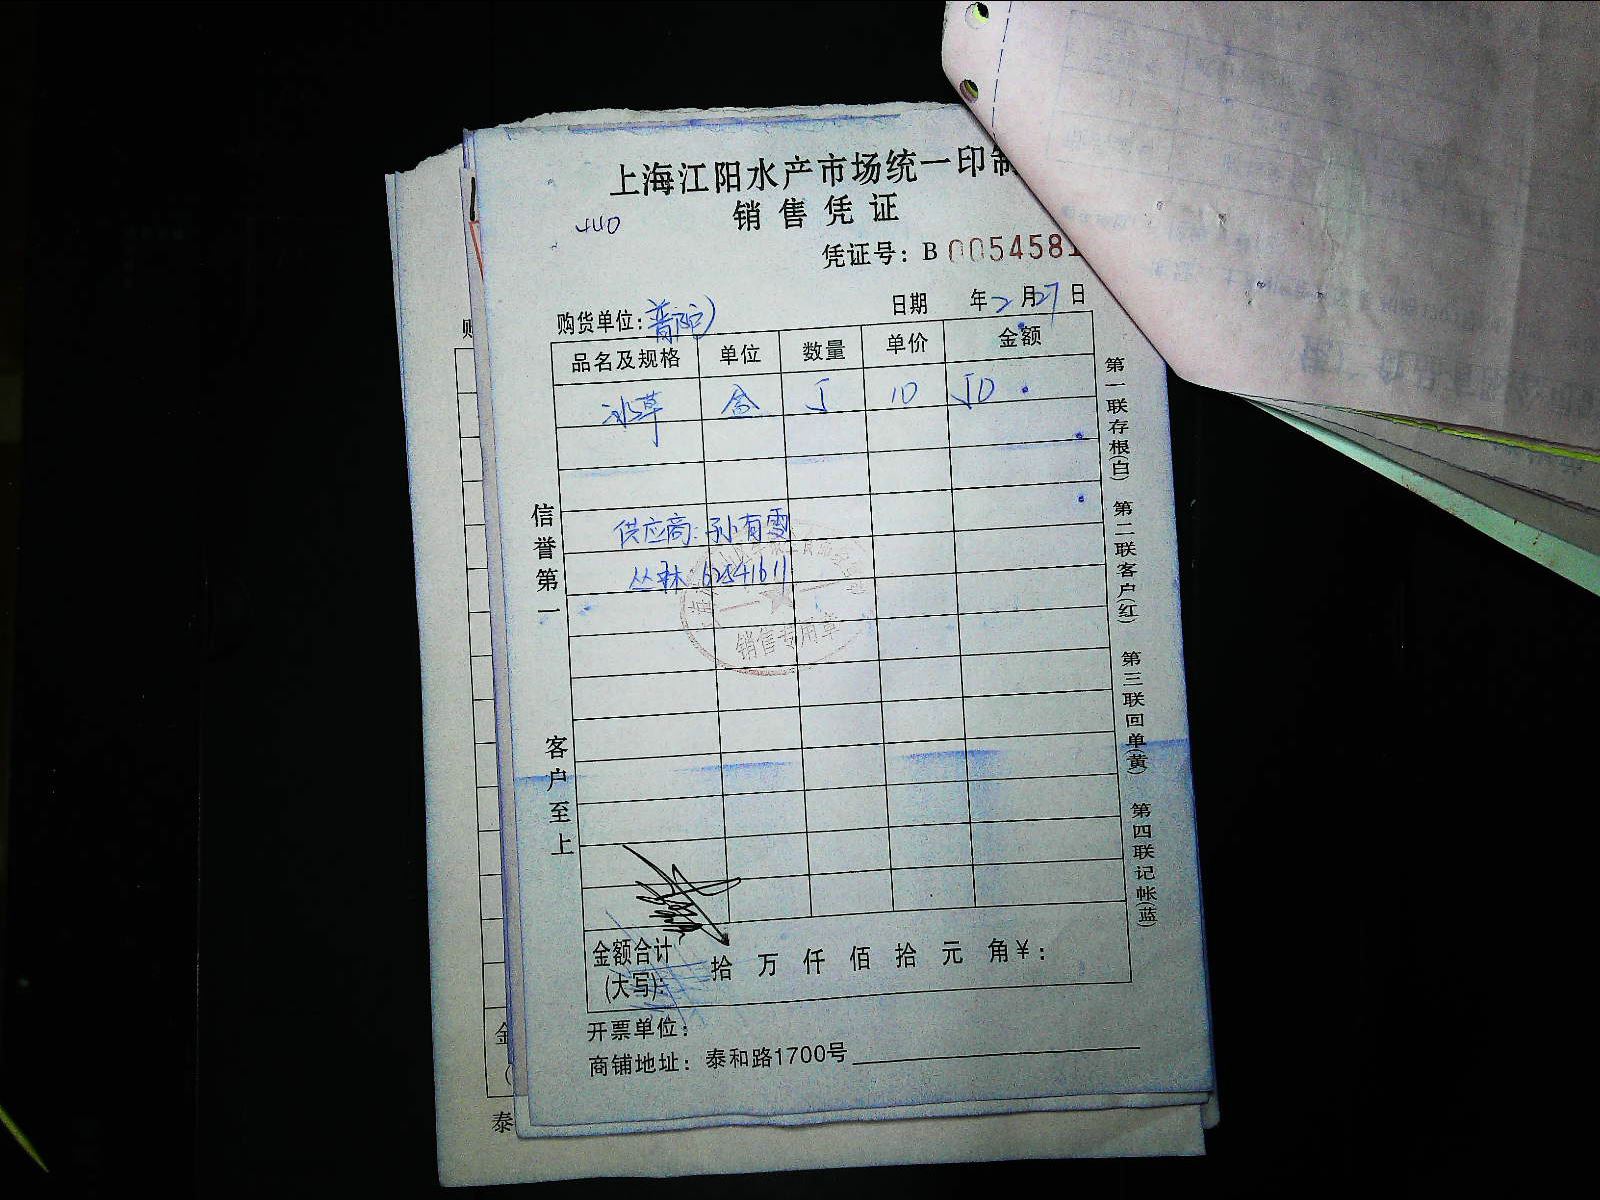 上海江阳水产市场统一印制
销售凭证
440
凭证号: B 0054581
购货单位: 普陀
日期 年 2 月 27 日
品名及规格 单位 数量 单价 金额
冰草 盒 5 10 50
供应商: 孙有雪
丛林 62541611
销售专用章
信誉第一
客户至上
第一联存根(白) 第二联客户(红) 第三联回单(黄) 第四联记帐(蓝)
金额合计 拾 万 仟 佰 拾 元 角 ¥:
(大写):
开票单位:
商铺地址: 泰和路1700号
泰